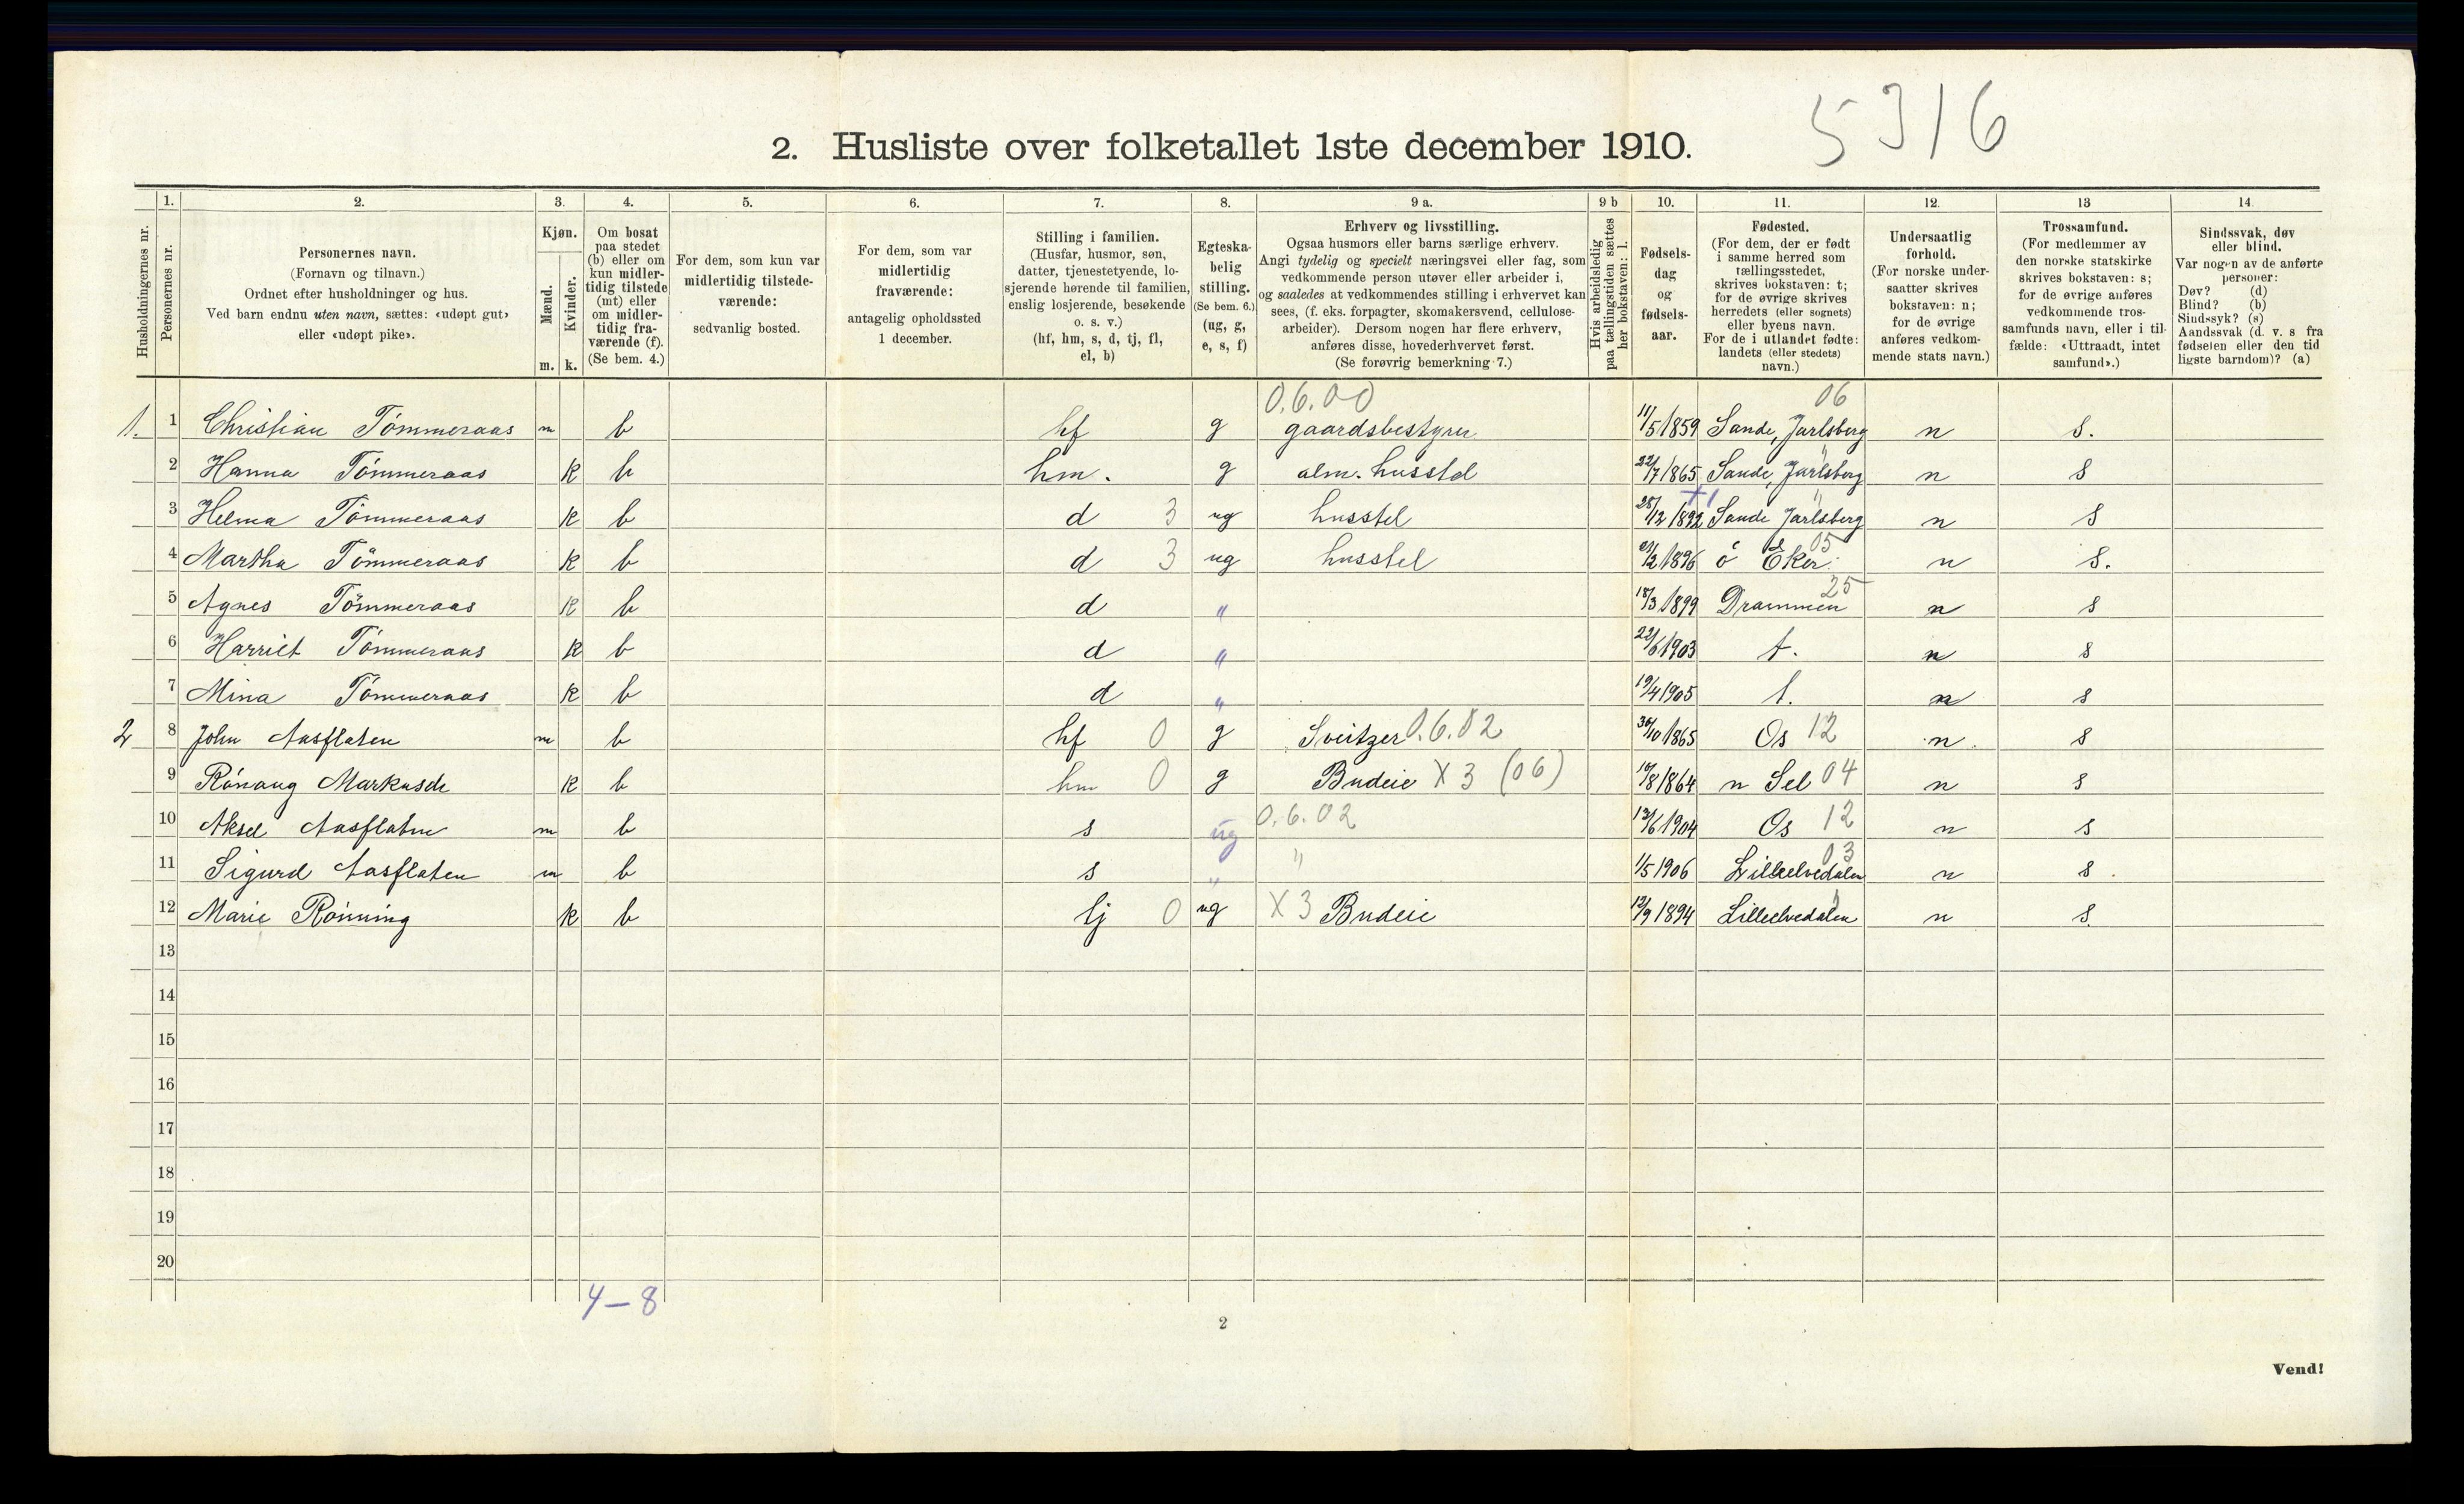 5316
2. Husliste over folketallet 1ste december 1910.
Husholdningernes nr.
1. 2. 3. 4. 5. 6. 7. 8. 9 a. 9 b 10. 11. 12. 13 14
Personernes nr.
Personernes navn.
(Fornavn og tilnavn.)
Ordnet efter husholdninger og hus.
Ved barn endnu uten navn, sættes: «udøpt gut»
eller «udøpt pike».
Kjøn.
Mænd. Kvinder.
m. k.
Om bosat
paa stedet
(b) eller om
kun midler-
tidig tilstede
(mt) eller
om midler-
tidig fra-
værende (f).
(Se bem. 4.)
For dem, som kun var
midlertidig tilstede-
værende:
sedvanlig bosted.
For dem, som var
midlertidig
fraværende:
antagelig opholdssted
1 december.
Stilling i familien.
(Husfar, husmor, søn,
datter, tjenestetyende, lo-
sjerende hørende til familien,
enslig losjerende, besøkende
o. s. v.)
(hf, hm, s, d, tj, fl,
el, b)
Egteska-
belig
stilling.
(Se bem. 6.)
(ug, g,
e, s, f)
Erhverv og livsstilling.
Ogsaa husmors eller barns særlige erhverv.
Angi tydelig og specielt næringsvei eller fag, som
vedkommende person utøver eller arbeider i,
og saaledes at vedkommendes stilling i erhvervet kan
sees, (f. eks. forpagter, skomakersvend, cellulose-
arbeider). Dersom nogen har flere erhverv,
anføres disse, hovederhvervet først.
(Se forøvrig bemerkning 7.)
Hvis arbeidsledig
paa tællingstiden sættes
her bokstaven: l.
Fødsels-
dag
og
fødsels-
aar.
Fødested.
(For dem, der er født
i samme herred som
tællingsstedet,
skrives bokstaven: t;
for de øvrige skrives
herredets (eller sognets)
eller byens navn.
For de i utlandet fødte:
landets (eller stedets)
navn.)
Undersaatlig
forhold.
(For norske under-
saatter skrives
bokstaven: n;
for de øvrige
anføres vedkom-
mende stats navn.)
Trossamfund.
(For medlemmer av
den norske statskirke
skrives bokstaven: s;
for de øvrige anføres
vedkommende tros-
samfunds navn, eller i til-
fælde: «Uttraadt, intet
samfund».)
Sindssvak, døv
eller blind.
Var nogen av de anførte
personer:
Døv? (d)
Blind? (b)
Sindssyk? (s)
Aandssvak (d. v. s fra
fødselen eller den tid
ligste barndom)? (a)
0.6.00 06
1. 1 Christian Tömmeraas m b hf g gaardsbestyrer 11/5 1859 Sande, Jarlsberg n s.
2 Hanna Tömmeraas k b hm. g alm. husstel 22/7 1865 Sande, Jarlsberg n s
3 Helma Tömmeraas k b d 3 ug husstel 28/12 1892 Sande Jarlsberg n s
4 Martha Tömmeraas k b d 3 ug husstel 1896 ö Eker 05 n s.
5 Agnes Tömmeraas k b d " 18/3 1899 Drammen 25 n s
6 Harriet Tömmeraas k b d " 22/6 1903 t. n s
7 Mina Tömmeraas k b d " 19/4 1905 t. n s
2 8 John Aasflaten m b hf 0 g Sveitzer 0.6.02 30/10 1865 Os 12 n. s
9 Rönaug Markusdr k b hm 0 g Budeie X 3 (06) 19/8 1864 n Sel 04 n s
10 Aksel Aasflaten m b s ug 0.6.02 1904 Os 12 n s
11 Sigurd Aasflaten m b s " " 1/5 1906 Lilleelvedalen 03 n s.
12 Marie Rönning k b tj 0 ug X 3 Budeie 12/9 1894 Lilleelvedalen " n s.
13
14
15
16
17
18
19
20
4–8
2
Vend!